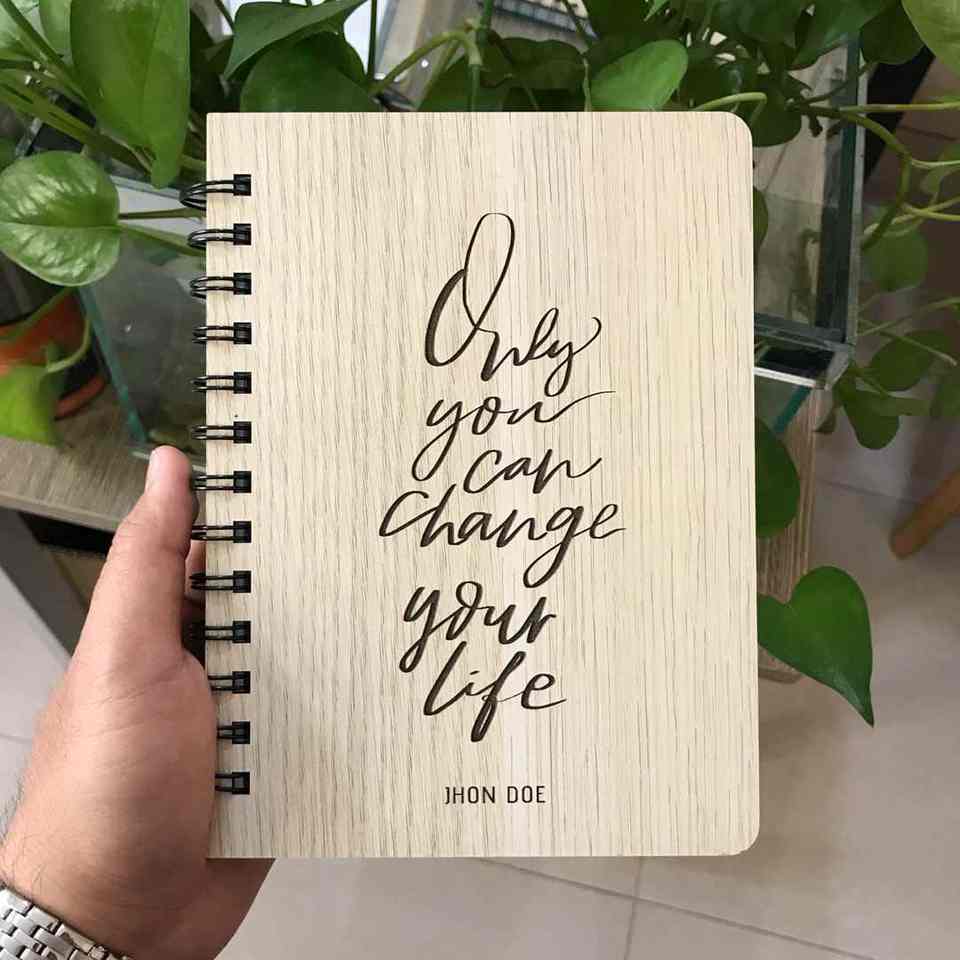 Only
you
can
change
your
life
JHON DOE